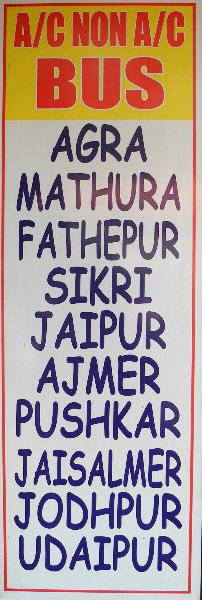 A/C NON A/C
BUS
AGRA
MATHURA
FATHEPUR
SIKRI
JAIPUR
AJMER
PUSHKAR
JAISALMER
JODHPUR
UDAIPUR